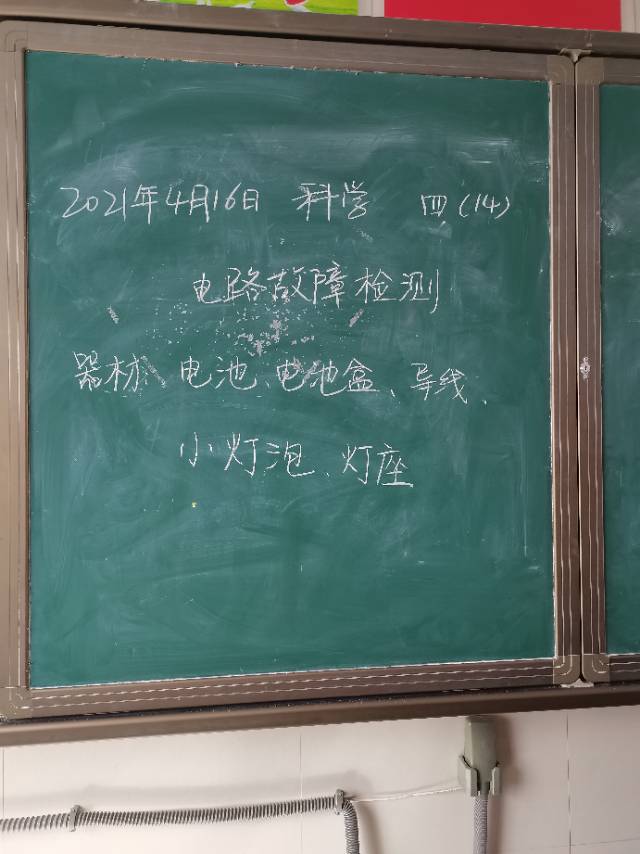 2021年4月16日 科学 四(14)
电路故障检测
器材 电池、电池盒、导线、
小灯泡、灯座